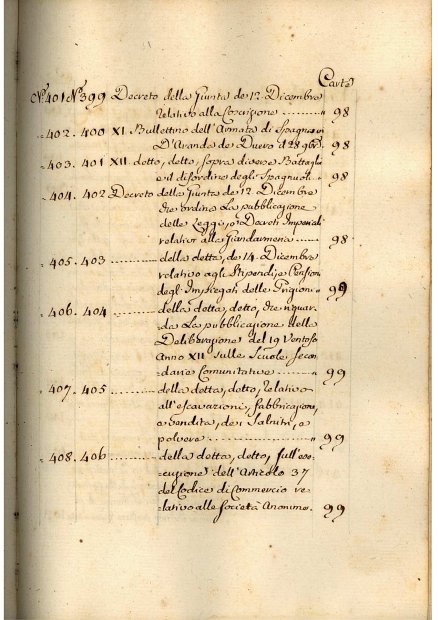 Carte
N.º 401 N.º 399 Decreto della Giunta de 12. Dicembre
relativo alla Coscrizione .......... „ 98
„ 402. 400 XI. Bullettino dell'Armata di Spagna
D'Aranda de Duero il 28 9bre „ 98
„ 403. 401 XII detto, detto, sopra diverse Battaglie
e il disordine degli Spagnuoli .. „ 98
„ 404. 402 Decreto della Giunta de 12. Dicembre
che ordina La pubblicazione
delle Leggi, o Decreti Imperiali
relativi alla Giandarmeria ........ 98
„ 405. 403 ............ della detta, de 14. Dicembre
relativo agli Stipendj e Pensioni
degl' Impiegati delle Prigioni „ 99
„ 406. 404 ............ della detta, detto, che riguar-
da La pubblicazione della
Deliberazione del 19 Ventoso
Anno XII sulle Scuole Secon
darie Comunitative .......... „ 99
„ 407. 405 ............ della detta, detto, relativo
all'escavazioni, fabbricazioni,
e vendita, dei Salnitri, e
polvere .................... „ 99
„ 408. 406 ............ della detta, detto, sull'ese-
cuzione dell'Articolo 37
del Codice di Commercio re
lativo alle Società Anonime. 99